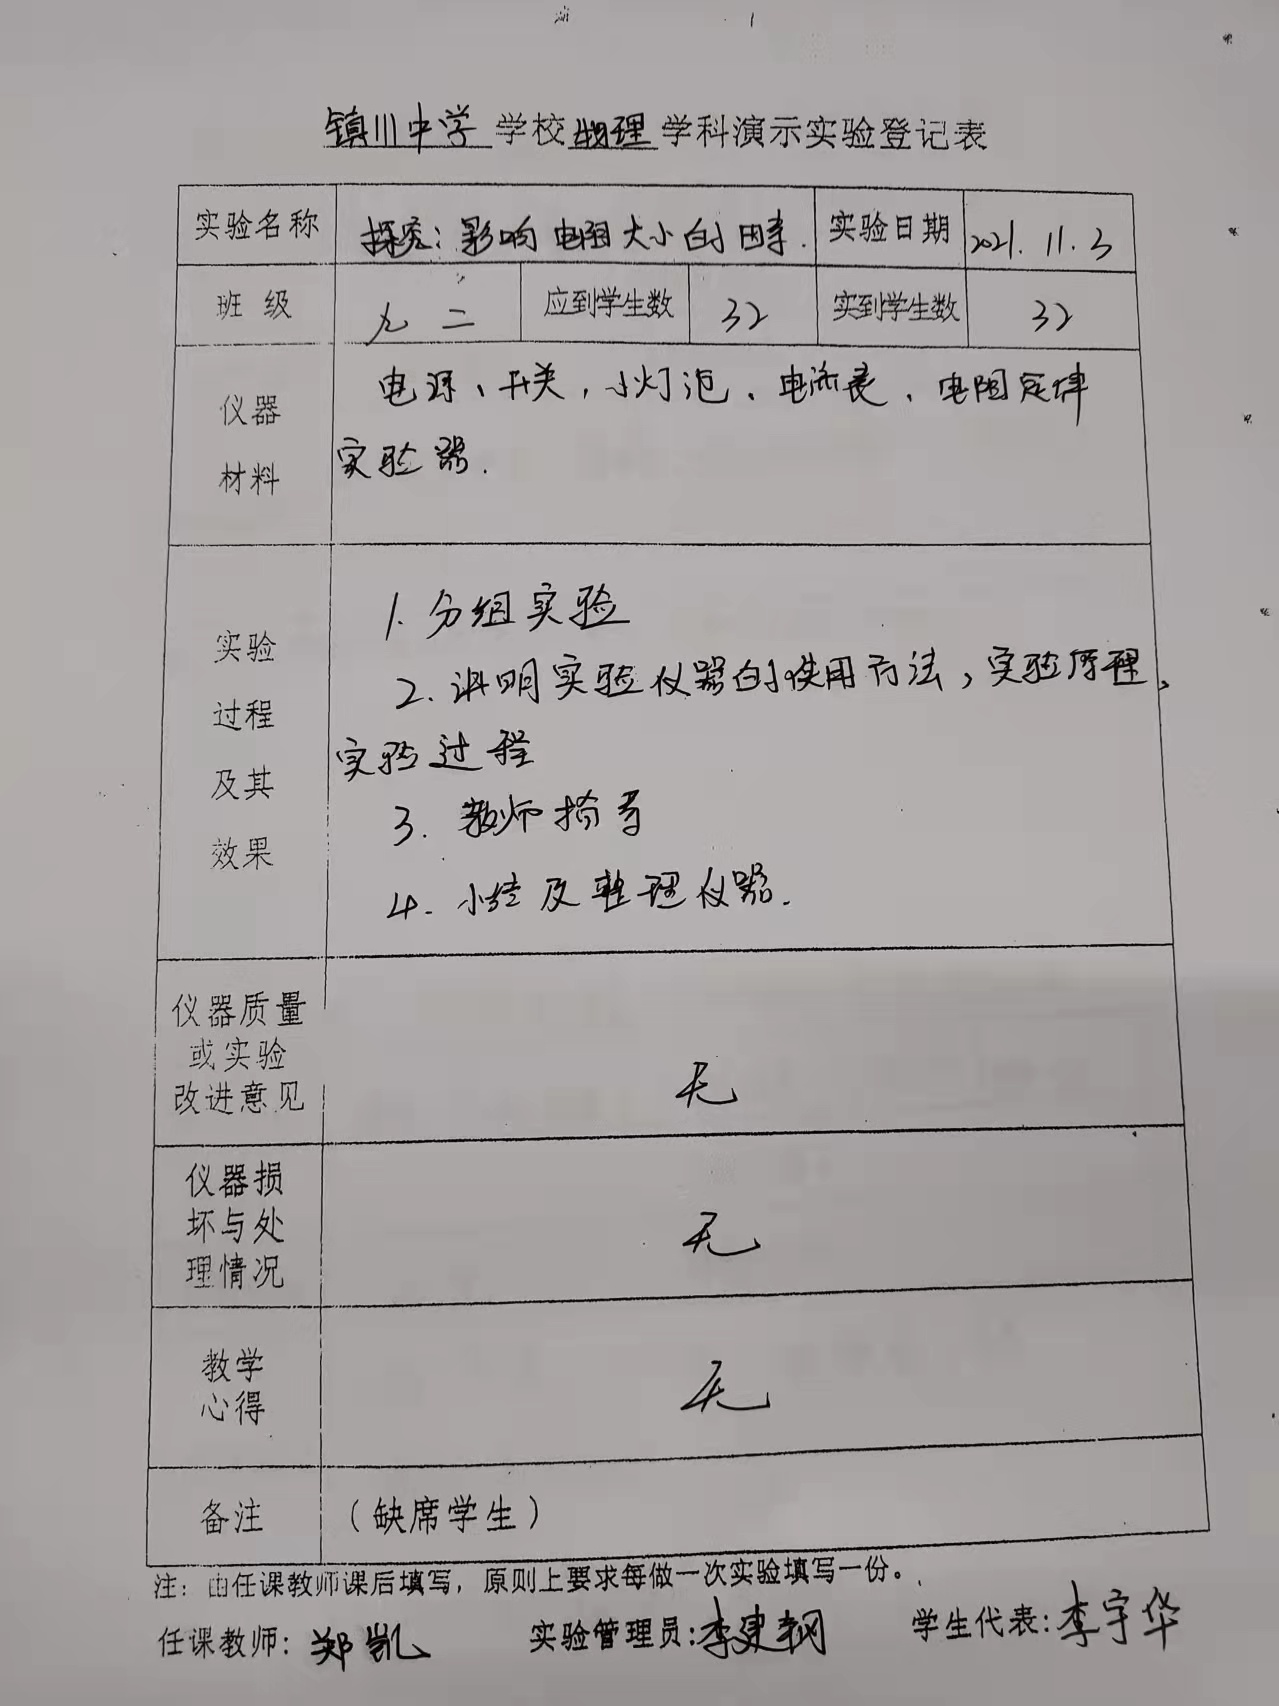 镇川中学学校物理学科演示实验登记表
实验名称 探究：影响电阻大小的因素. 实验日期 2021.11.3
班级 九二 应到学生数 32 实到学生数 32
仪器材料
电源、开关，小灯泡、电流表、电阻定律
实验器.
实验过程及其效果
1. 分组实验
2. 讲明实验仪器的使用方法，实验原理、
实验过程
3. 教师指导
4. 小结及整理仪器.
仪器质量
或实验
改进意见
无
仪器损
坏与处
理情况
无
教学
心得
无
备注 （缺席学生）
注：由任课教师课后填写，原则上要求每做一次实验填写一份。
任课教师：郑凯 实验管理员：李建钢 学生代表：李宇华